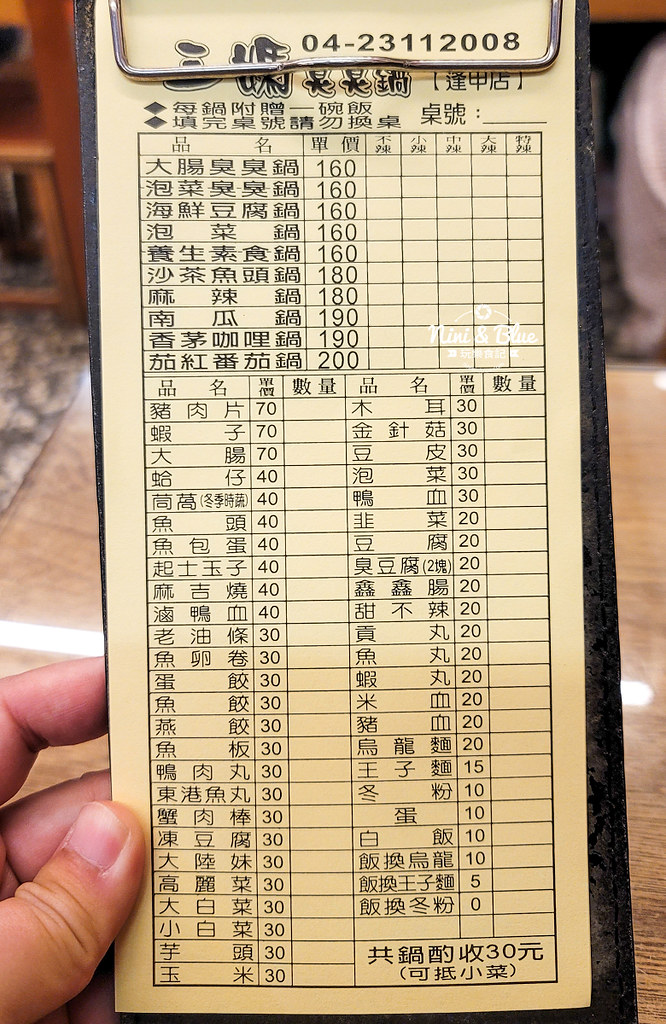 三媽 04-23112008
臭臭鍋【逢甲店】
◆每鍋附贈一碗飯
◆填完桌號請勿換桌 桌號：
品名 單價 不辣 小辣 中辣 大辣 特辣
大腸臭臭鍋 160
泡菜臭臭鍋 160
海鮮豆腐鍋 160
泡菜鍋 160
養生素食鍋 160
沙茶魚頭鍋 180
麻辣鍋 180
南瓜鍋 190
香茅咖哩鍋 190
茄紅番茄鍋 200
Nini & Blue
玩樂食記
品名 單價 數量 品名 單價 數量
豬肉片 70 木耳 30
蝦子 70 金針菇 30
大腸 70 豆皮 30
蛤仔 40 泡菜 30
茼萵(冬季時蔬) 40 鴨血 30
魚頭 40 韭菜 20
魚包蛋 40 豆腐 20
起士玉子 40 臭豆腐(2塊) 20
麻吉燒 40 鑫鑫腸 20
滷鴨血 40 甜不辣 20
老油條 30 貢丸 20
魚卵卷 30 魚丸 20
蛋餃 30 蝦丸 20
魚餃 30 米血 20
燕餃 30 豬血 20
魚板 30 烏龍麵 20
鴨肉丸 30 王子麵 15
東港魚丸 30 冬粉 10
蟹肉棒 30 蛋 10
凍豆腐 30 白飯 10
大陸妹 30 飯換烏龍 10
高麗菜 30 飯換王子麵 5
大白菜 30 飯換冬粉 0
小白菜 30
芋頭 30 共鍋酌收30元
玉米 30 (可抵小菜)